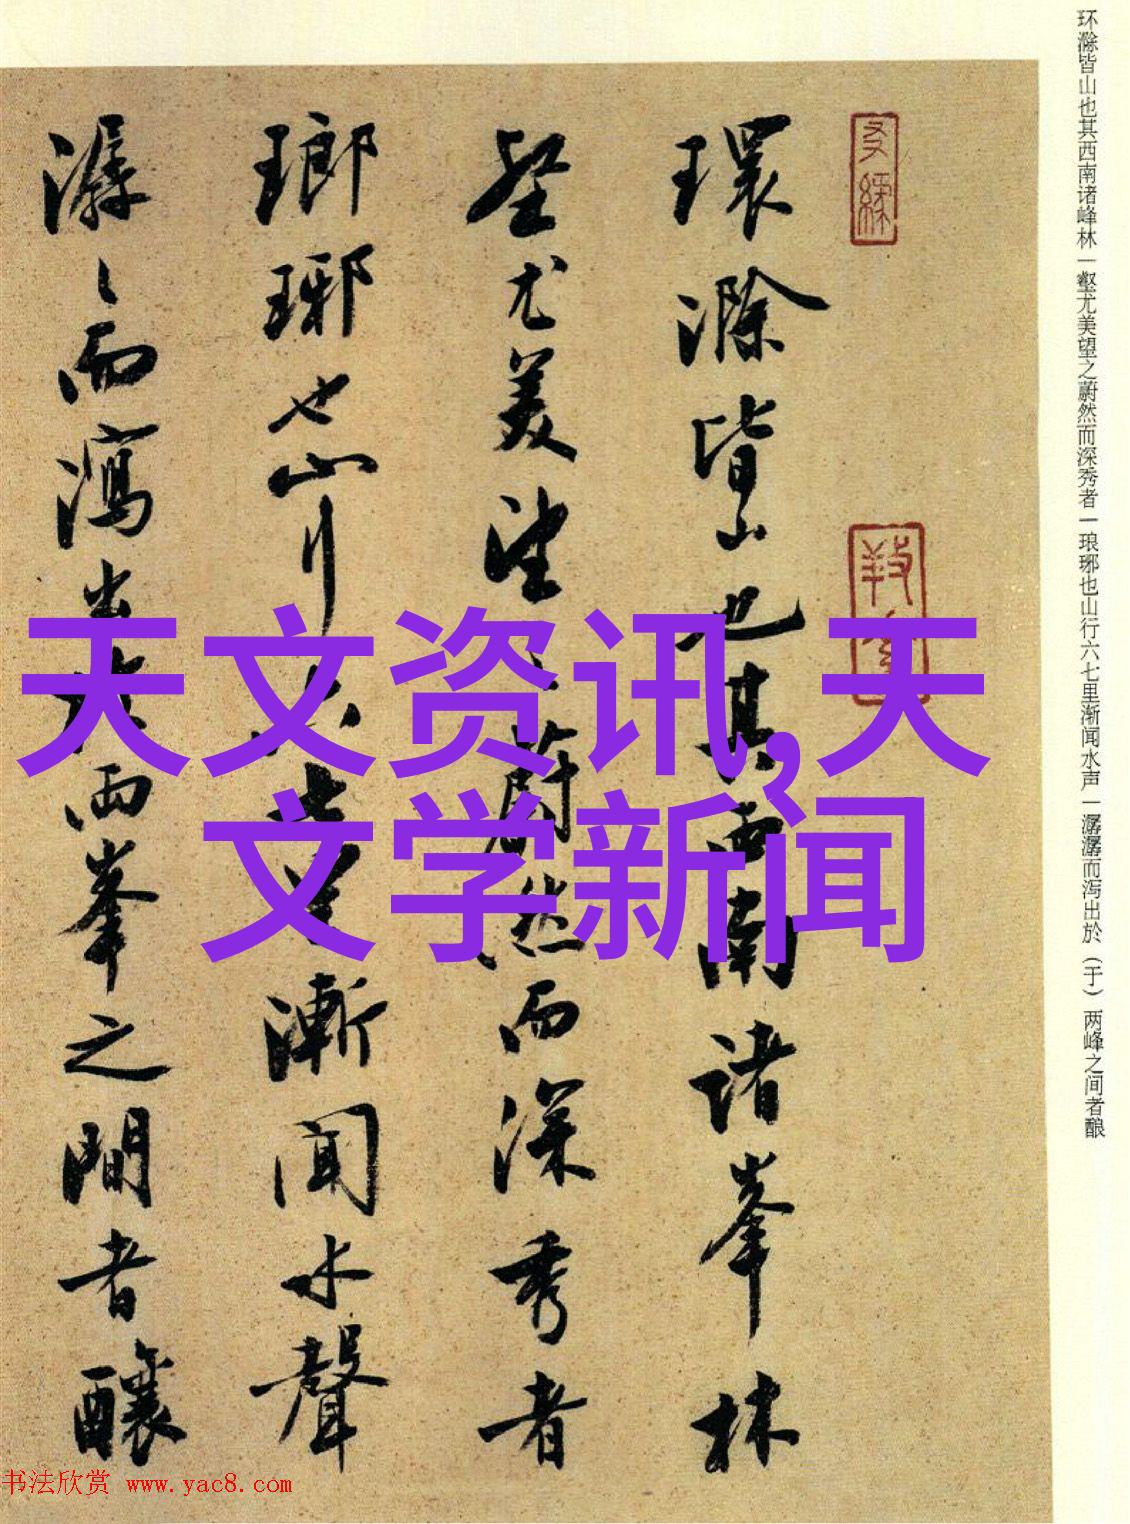 环滁皆山也其西南诸峰林一壑尤美望之蔚然而深秀者一琅琊也山行六七里渐闻水声一潺潺而泻出於（于）两峰之间者酿
環滁皆山也其西南诸峯林
壑尤美望之蔚然而深秀者
瑯琊也山行六七里漸闻水聲
潺〻而瀉出於两峯之間者釀
天文资讯,天
文学新闻
书法欣赏 www.yac8.com